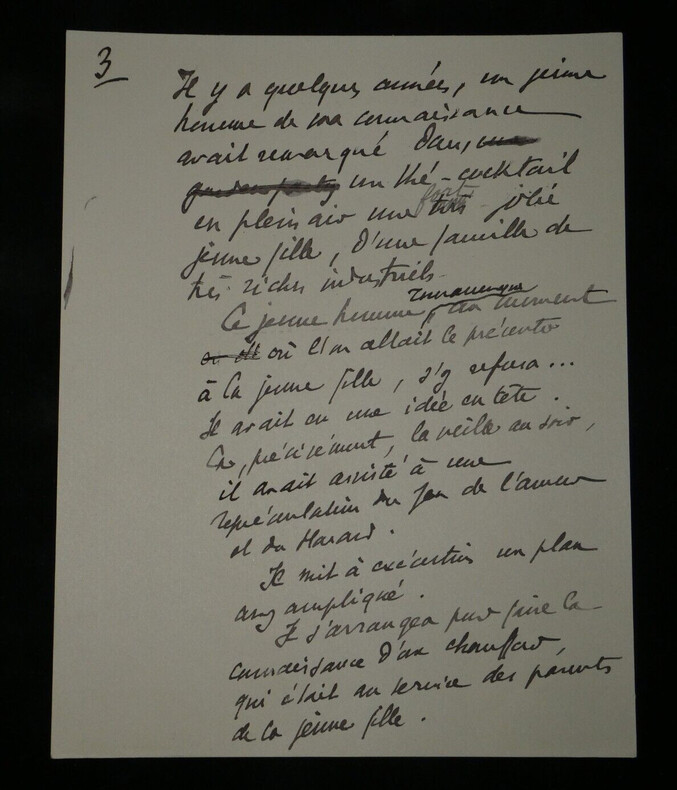 3
Il y a quelques années, un jeune
homme de ma connaissance
avait remarqué dans une
garden party un thé-cocktail
en plein air une très fort jolie
jeune fille, d'une famille de
très riches industriels.
Ce jeune homme, romanesque, au moment
où l'on allait le présenter
à la jeune fille, s'y refusa...
Il avait eu une idée en tête.
Or, précisément, la veille au soir,
il avait assisté à une
représentation du Jeu de l'amour
et du Hasard.
Il mit à exécution un plan
assez compliqué.
Il s'arrangea pour faire la
connaissance d'un chauffeur,
qui était au service des parents
de la jeune fille.